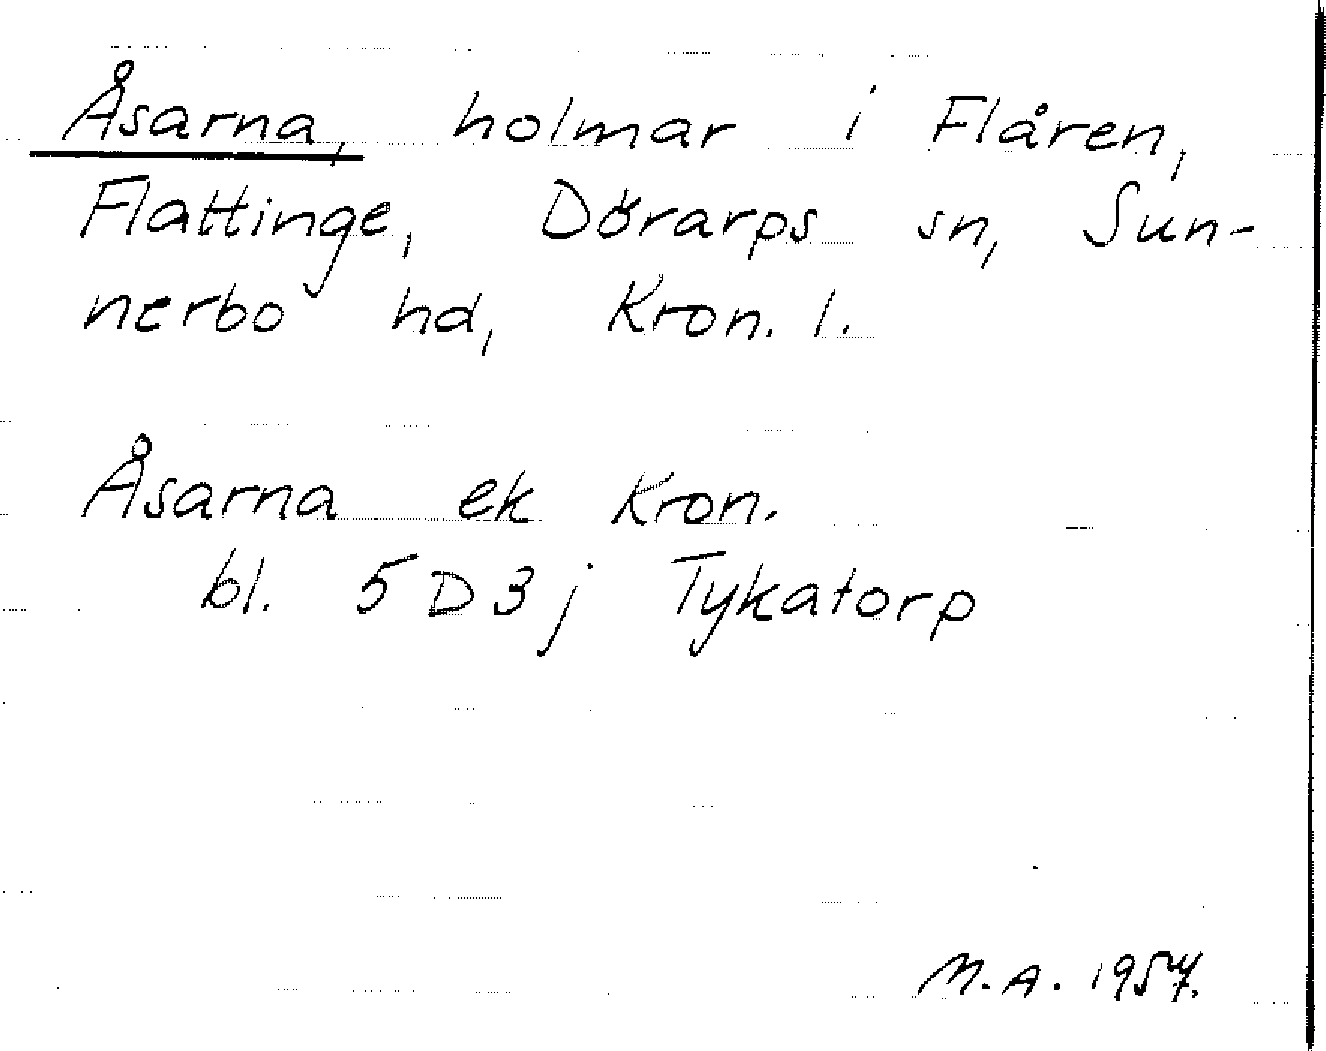 Åsarna, holmar i Flåren,
Flattinge, Dörarps sn, Sun-
nerbo hd, Kron. l.
Åsarna ek Kron.
bl. 5D3j Tykatorp
M.A. 1957.